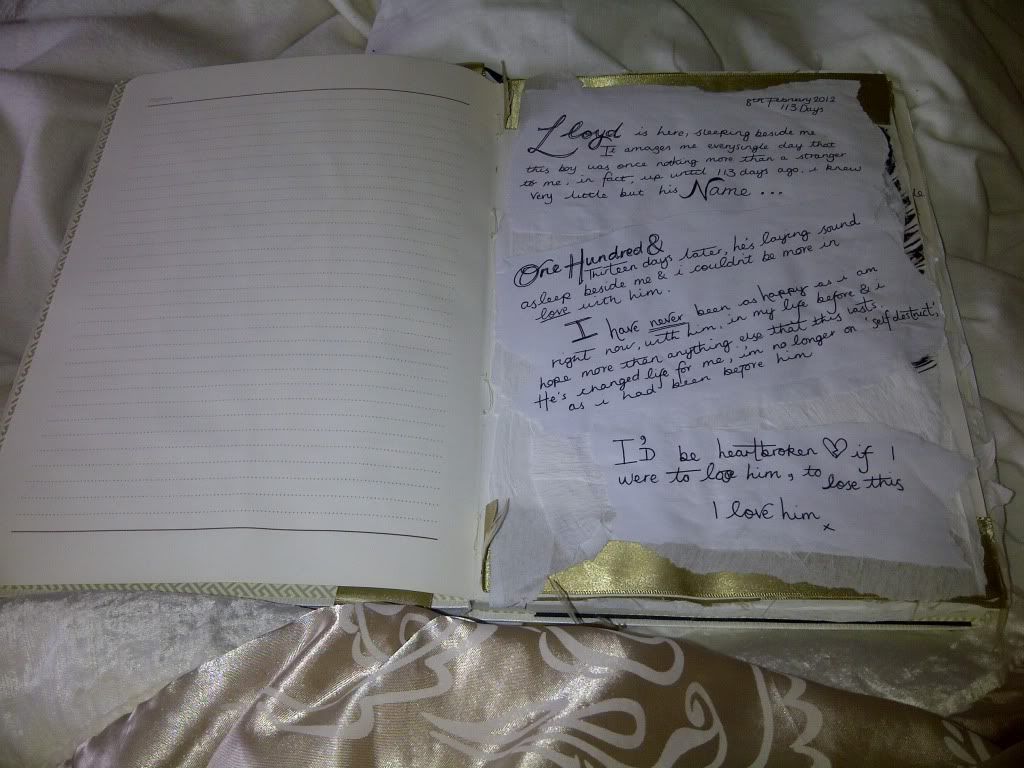 8th February 2012
113 Days
Lloyd is here, sleeping beside me
It amazes me everysingle day that
this boy was once nothing more than a stranger
to me, in fact, up until 113 days ago. i knew
very little but his Name ...
One Hundred &
Thirteen days later, he's laying sound
asleep beside me & i couldnt be more in
love with him.
I have never been as happy as i am
right now, with him, in my life before & i
hope more than anything else that this lasts.
He's changed life for me, i'm no longer on 'self destruct',
as i had been before him
I'D be heartbroken if I
were to lose him, to lose this
I love him x